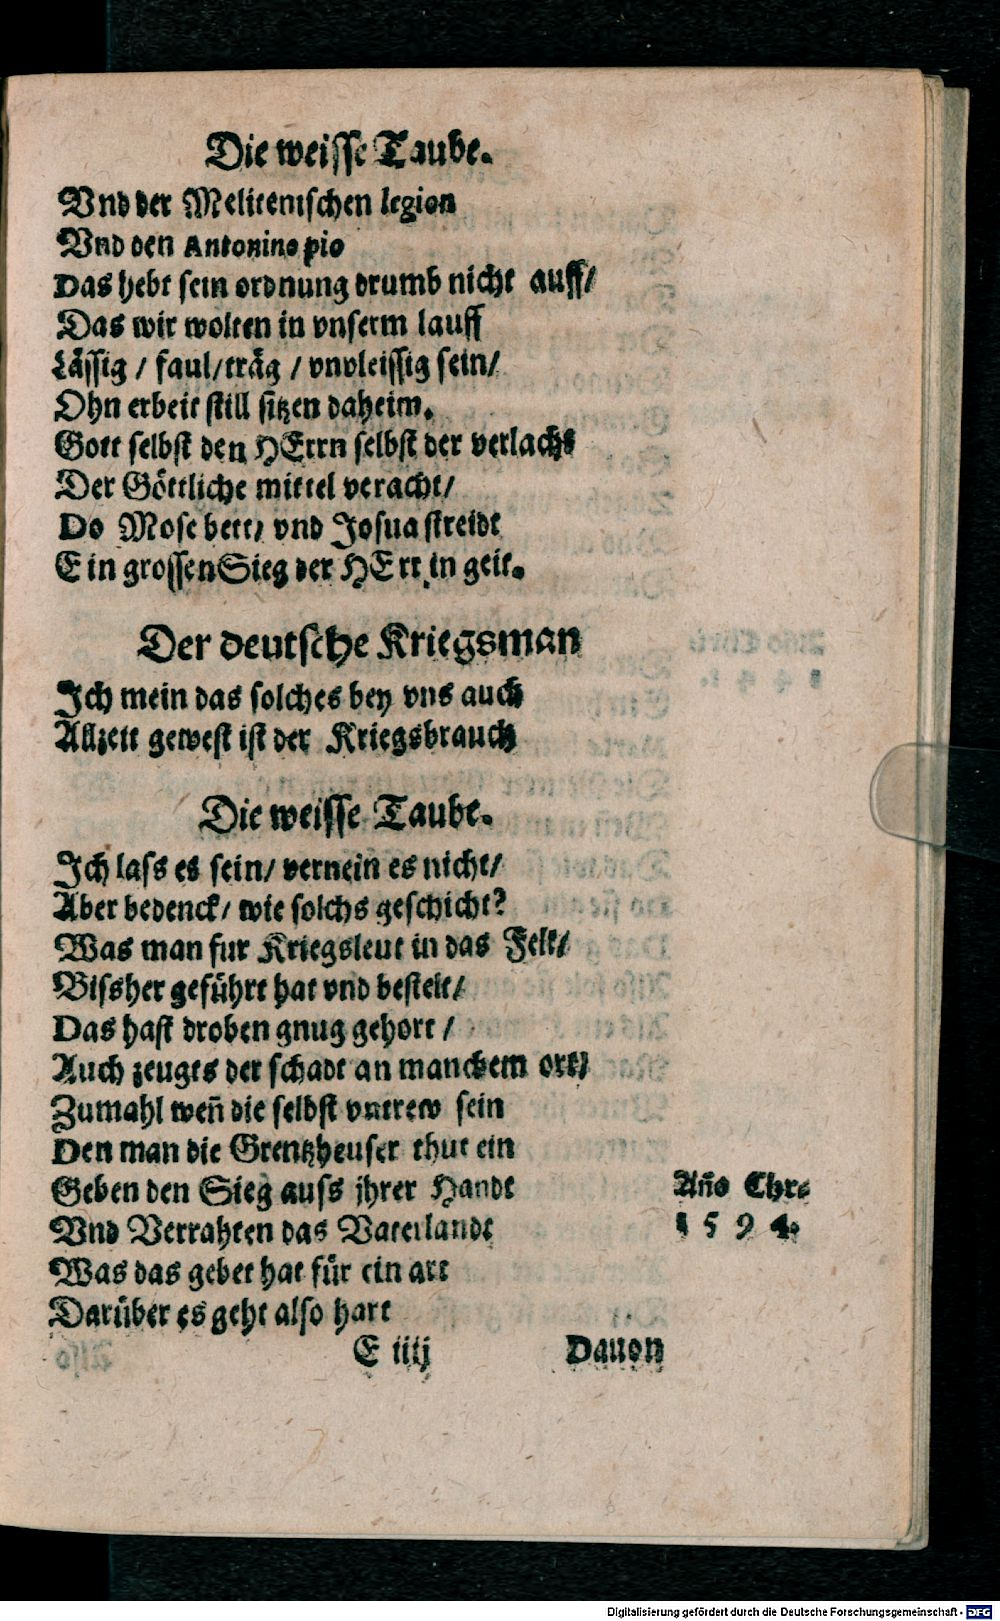 Die weisse Taube.
Vnd der Melitenischen legion
Vnd den Antonino pio
Das hebt sein ordnung drumb nicht auff/
Das wir wolten in vnserm lauff
Lässig / faul/träg / vnvleissig sein/
Ohn erbeit still sitzen daheim.
Gott selbst den HErrn selbst der verlacht
Der Göttliche mittel veracht/
Do Mose bett/ vnd Josua streidt
Ein grossen Sieg der HErr in geit.
Der deutsche Kriegsman
Jch mein das solches bey vns auch
Allzeit gewest ist der Kriegsbrauch
Die weisse Taube.
Jch lass es sein/ vernein es nicht/
Aber bedenck/ wie solchs geschicht?
Was man fur Kriegsleut in das Felt/
Bissher geführt hat vnd bestelt/
Das hast droben gnug gehort /
Auch zeugts der schadt an manchem ort/
Zumahl weñ die selbst vntrew sein
Den man die Grentzheuser thut ein
Geben den Sieg auss jhrer Handt
Vnd Verrahten das Vaterlandt
Año Chr.
1594.
Was das gebet hat für ein art
Darüber es geht also hart
E iiij Dauon
Digitalisierung gefördert durch die Deutsche Forschungsgemeinschaft - DFG